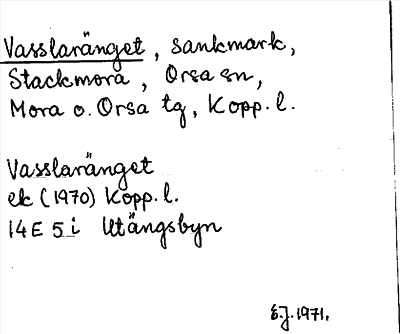 Vasslaränget, sankmark,
Stackmora, Orsa sn,
Mora o. Orsa tg, Kopp. l.
Vasslaränget
ek (1970) Kopp. l.
14E 5i Utängsbyn
E.J. 1971.